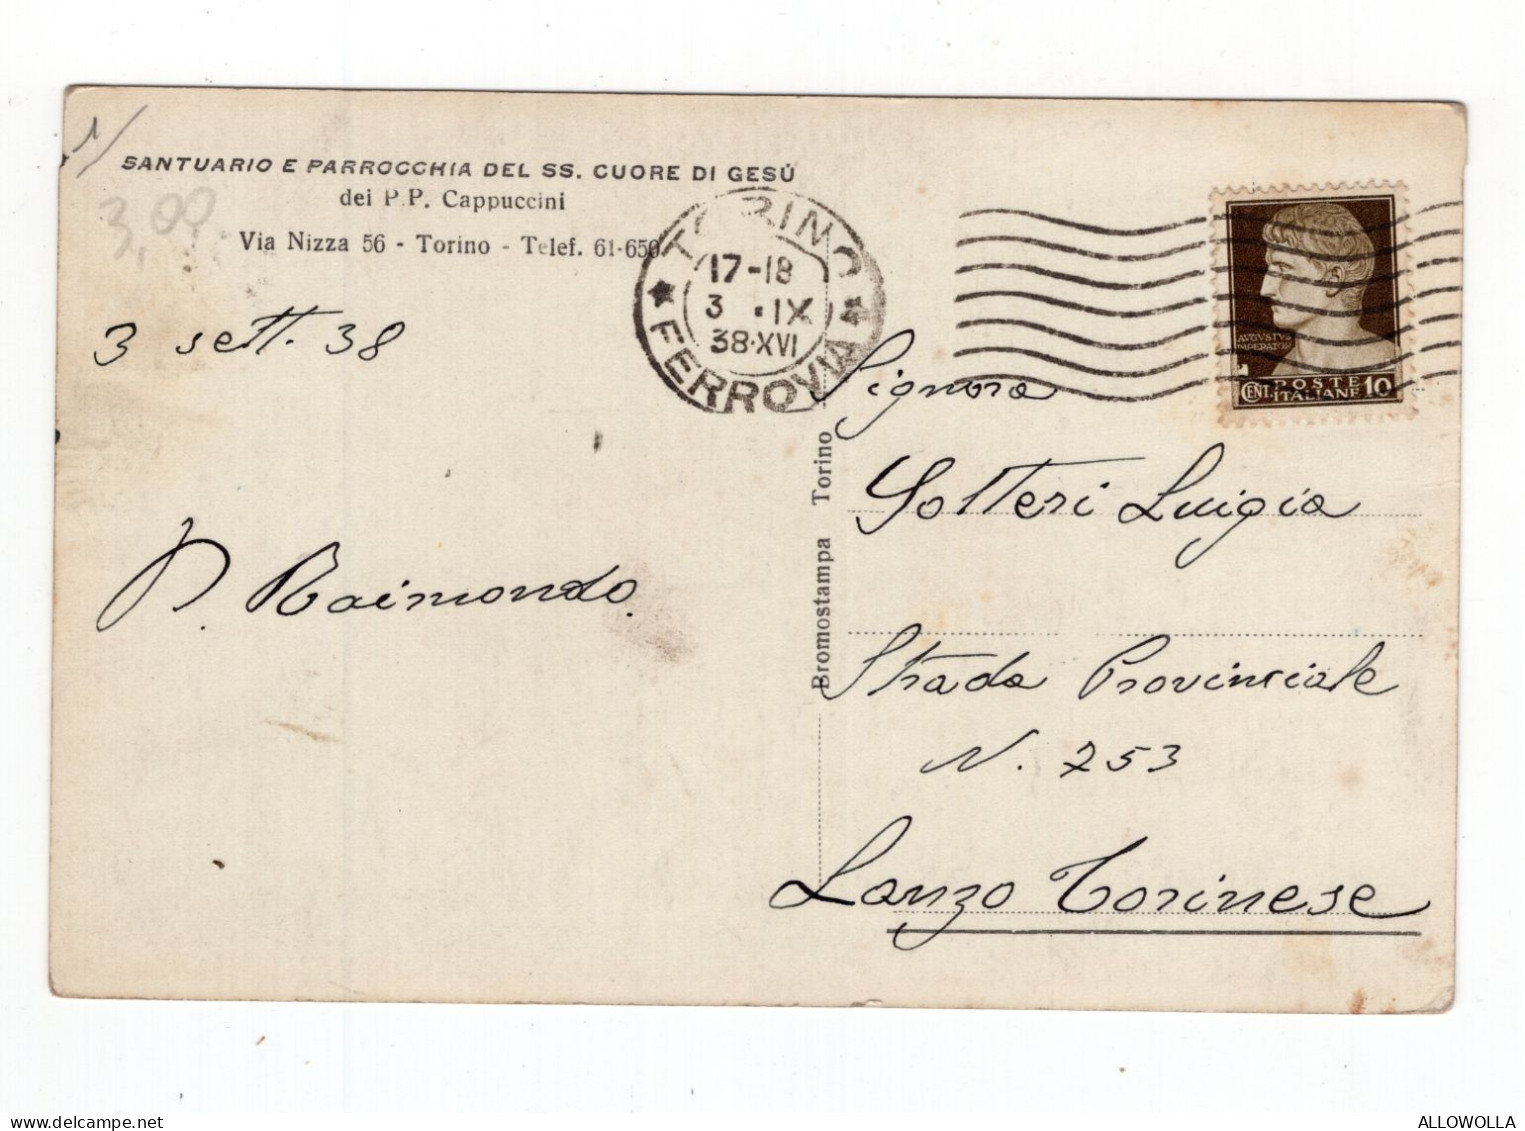 1/
SANTUARIO E PARROCCHIA DEL SS. CUORE DI GESÙ
dei P.P. Cappuccini
3,00
Via Nizza 56 - Torino - Telef. 61-650
3 sett. 38
P. Raimondo.
TORINO
17-18
3 .IX
38·XVI
FERROVIA
AVGVSTVS
IMPERATOR
CENT. POSTE 10
ITALIANE
Bromostampa Torino
Signora
Solteri Luigia
Strada Provinciale
N. 253
Lanzo Torinese
ALLOWOLLA